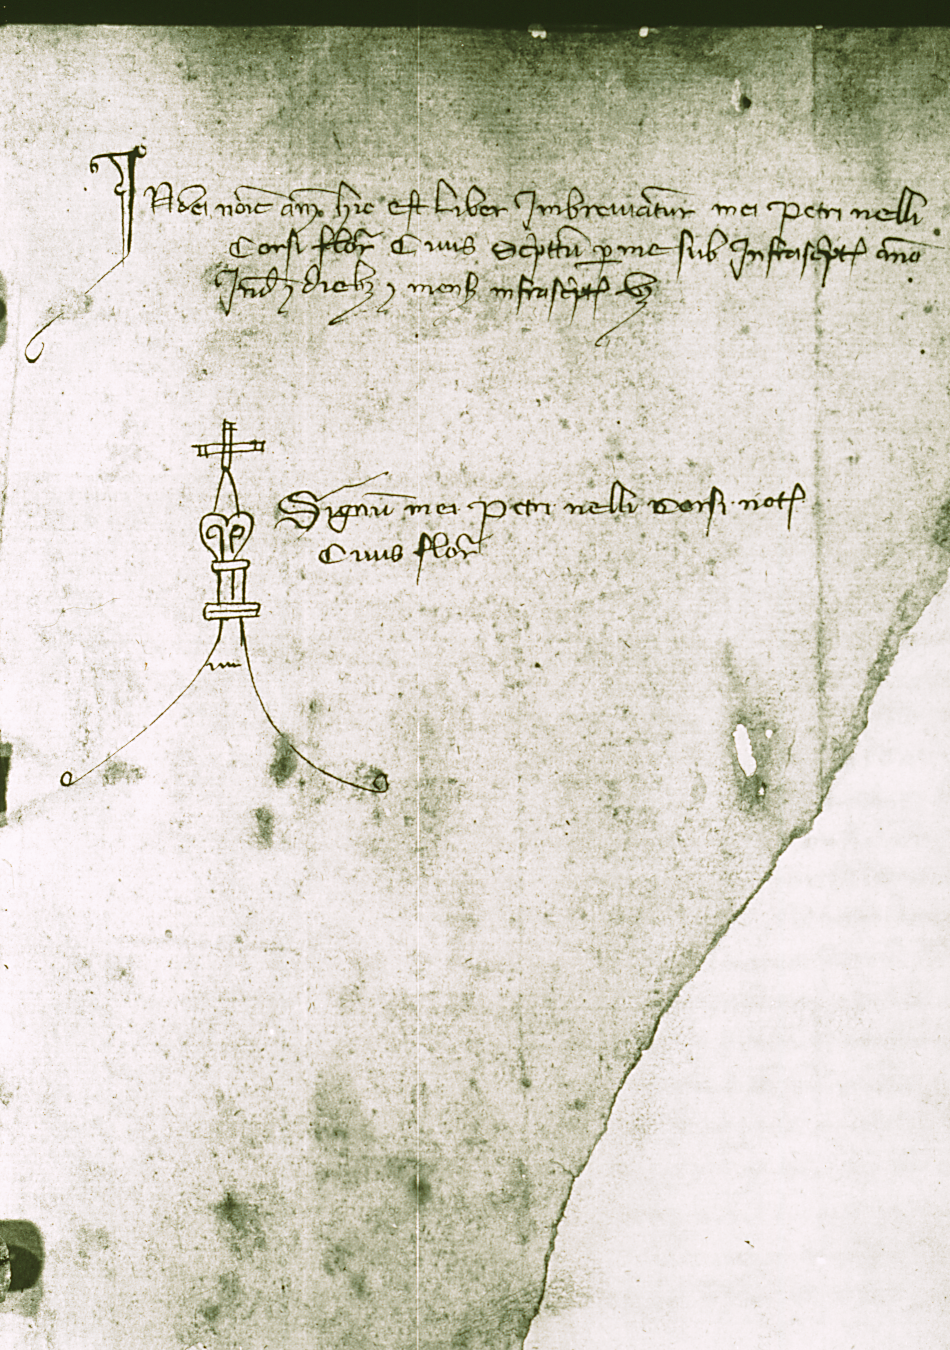 IN dei noīe am̄. hic est liber Imbreviaturˀ mei petri nelli
Corsi florˀ Civis Scpttū per me sub Infrascpt̄ año
Ind̄ɜ dieb₃ ɜ mens₃ infrascpt̄ vꝫ
Signū mei petri nelli corsi not̄
Civis florˀ